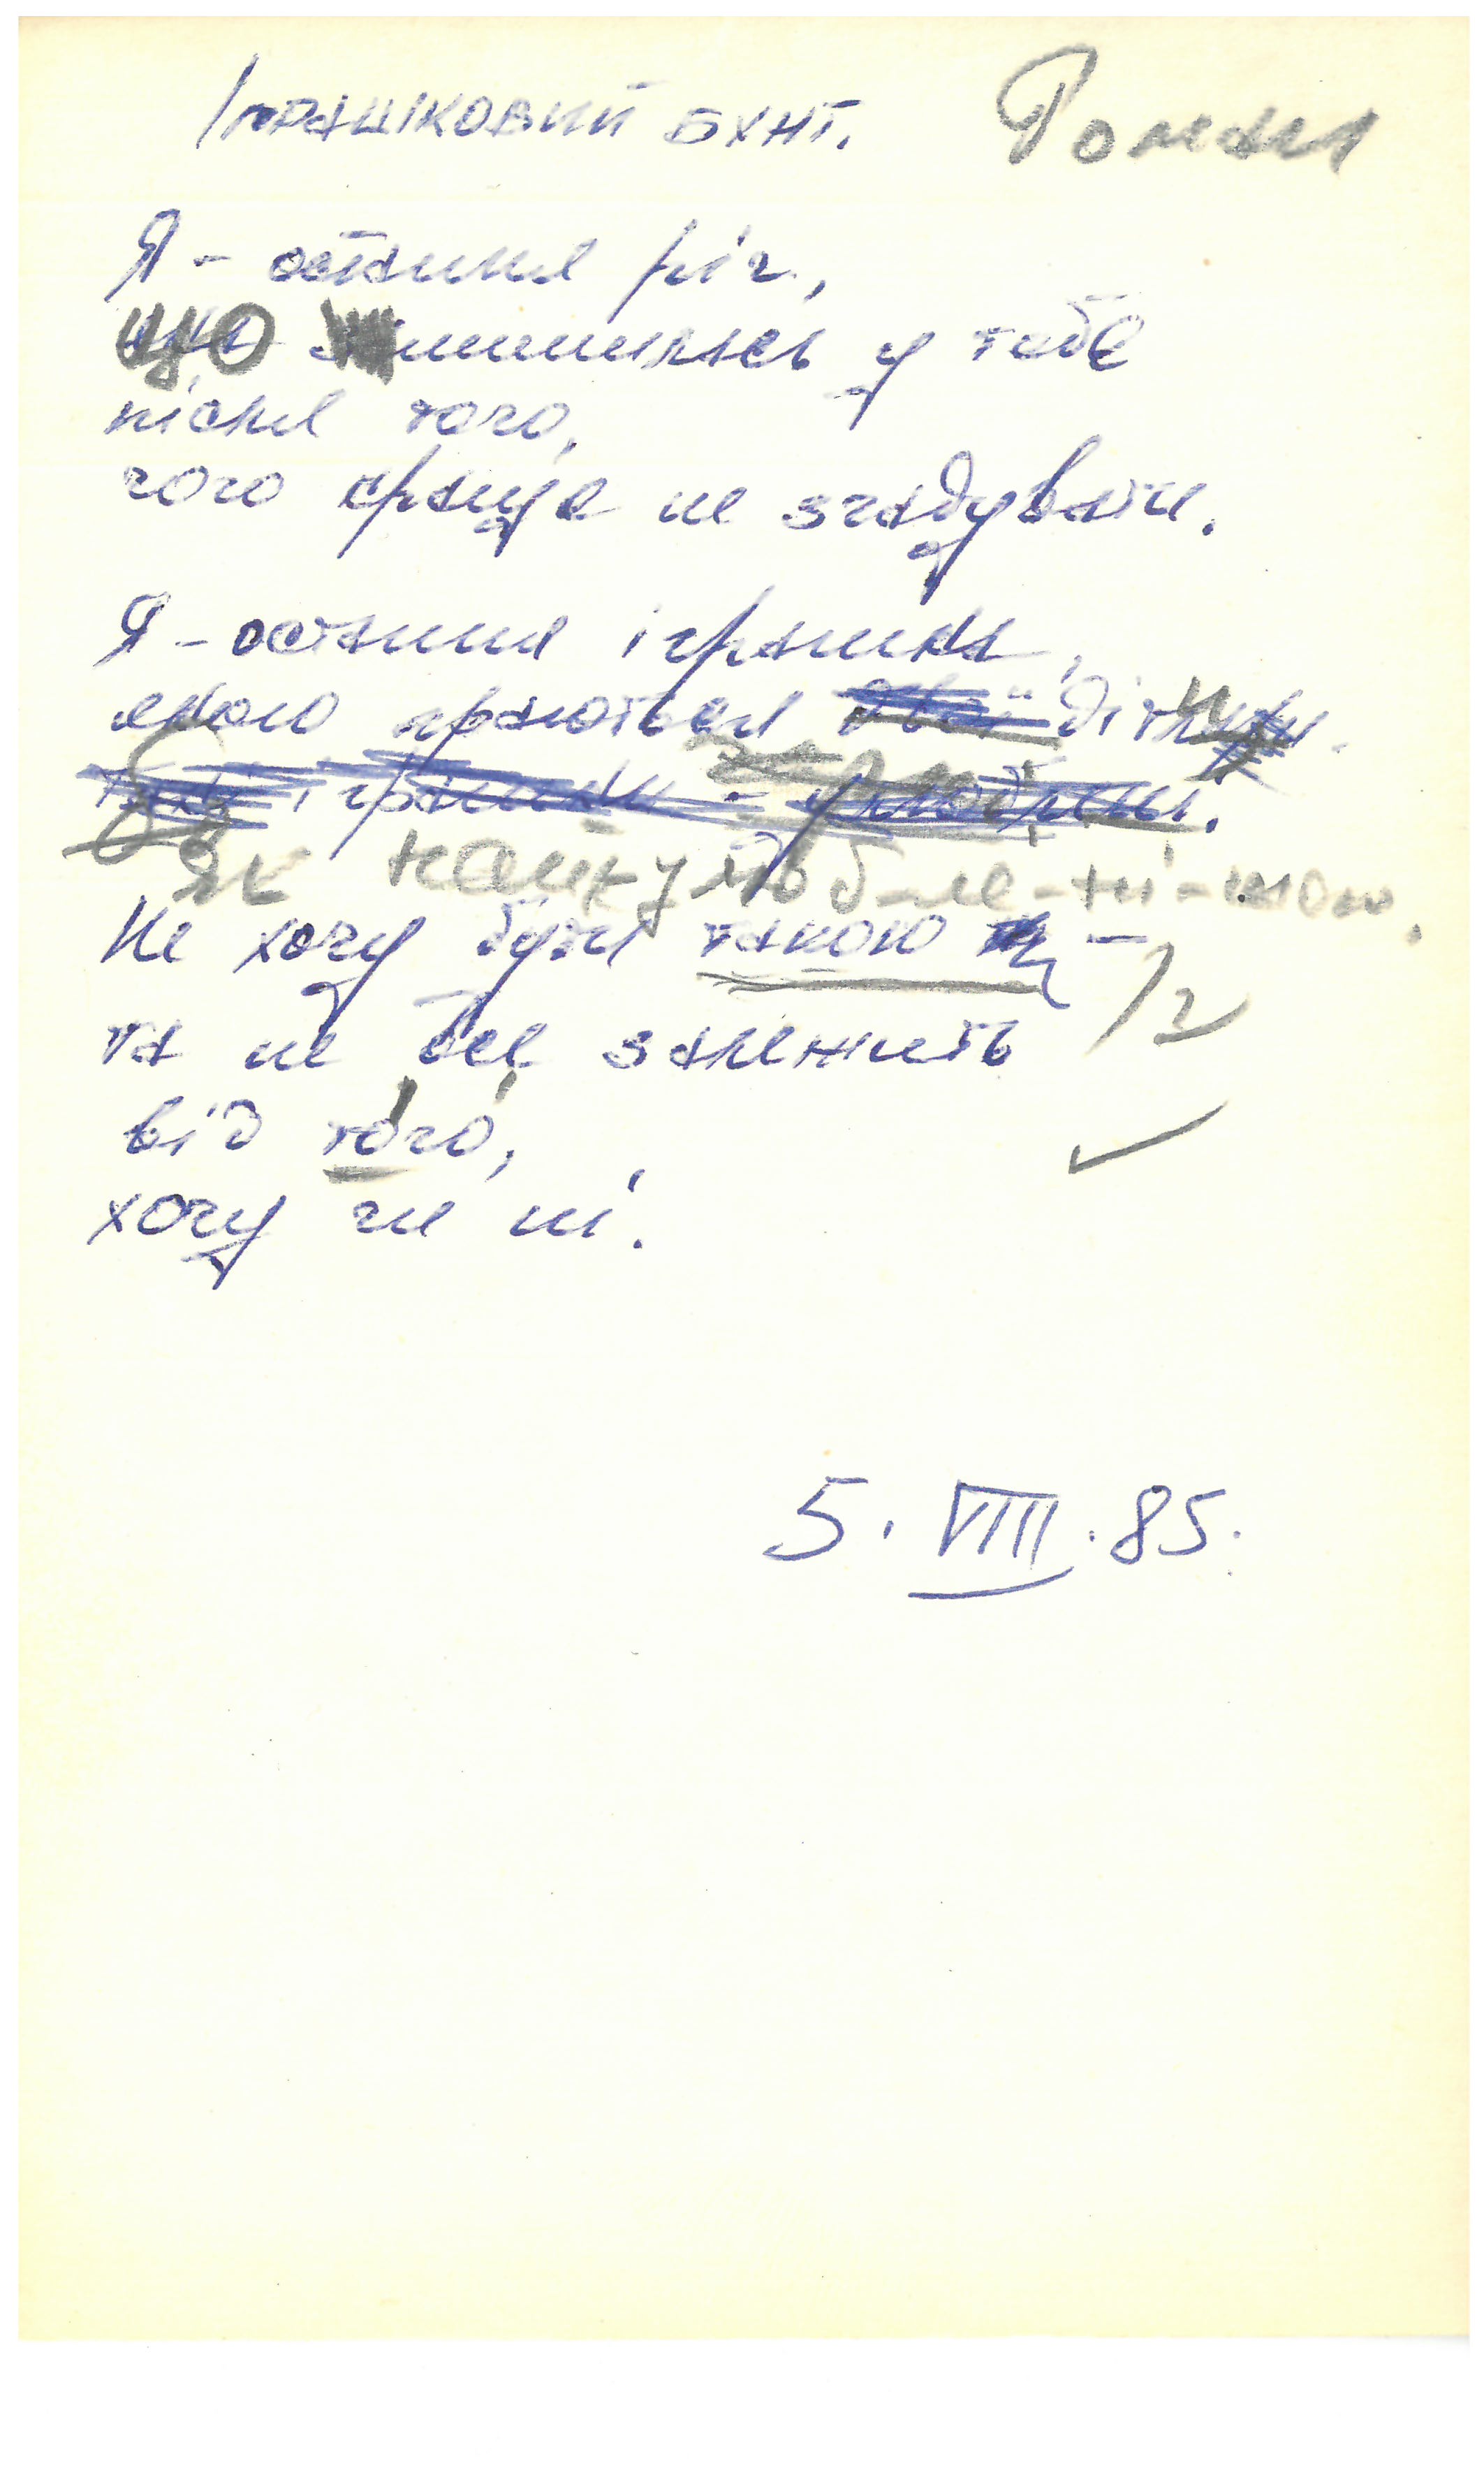 ІГРАШКОВИЙ БУНТ. Роман
Я - остання річ,
що лишилась у тебе
після того,
чого краще не згадувати.
Я - остання іграшка,
якою граються діти
іграшки - улюблені.
Як найулюбле-ні-шою.
Не хочу бути такою -
та не все залежить
від того,
хочу чи ні.
5. VIII. 85.